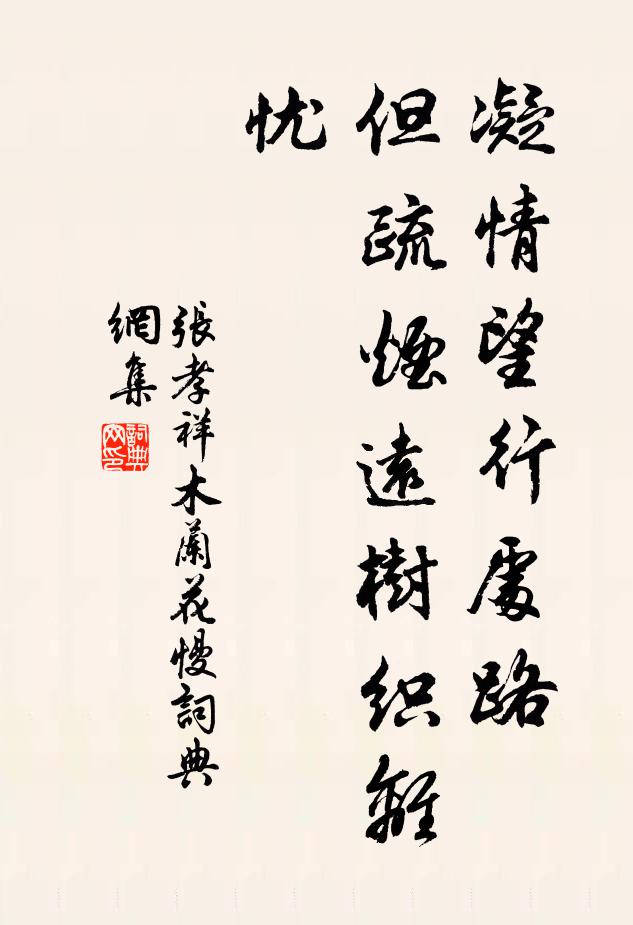 凝情望行處路
但疏煙遠樹织離
忧
張孝祥木蘭花慢詞典
網集
詞典
网印